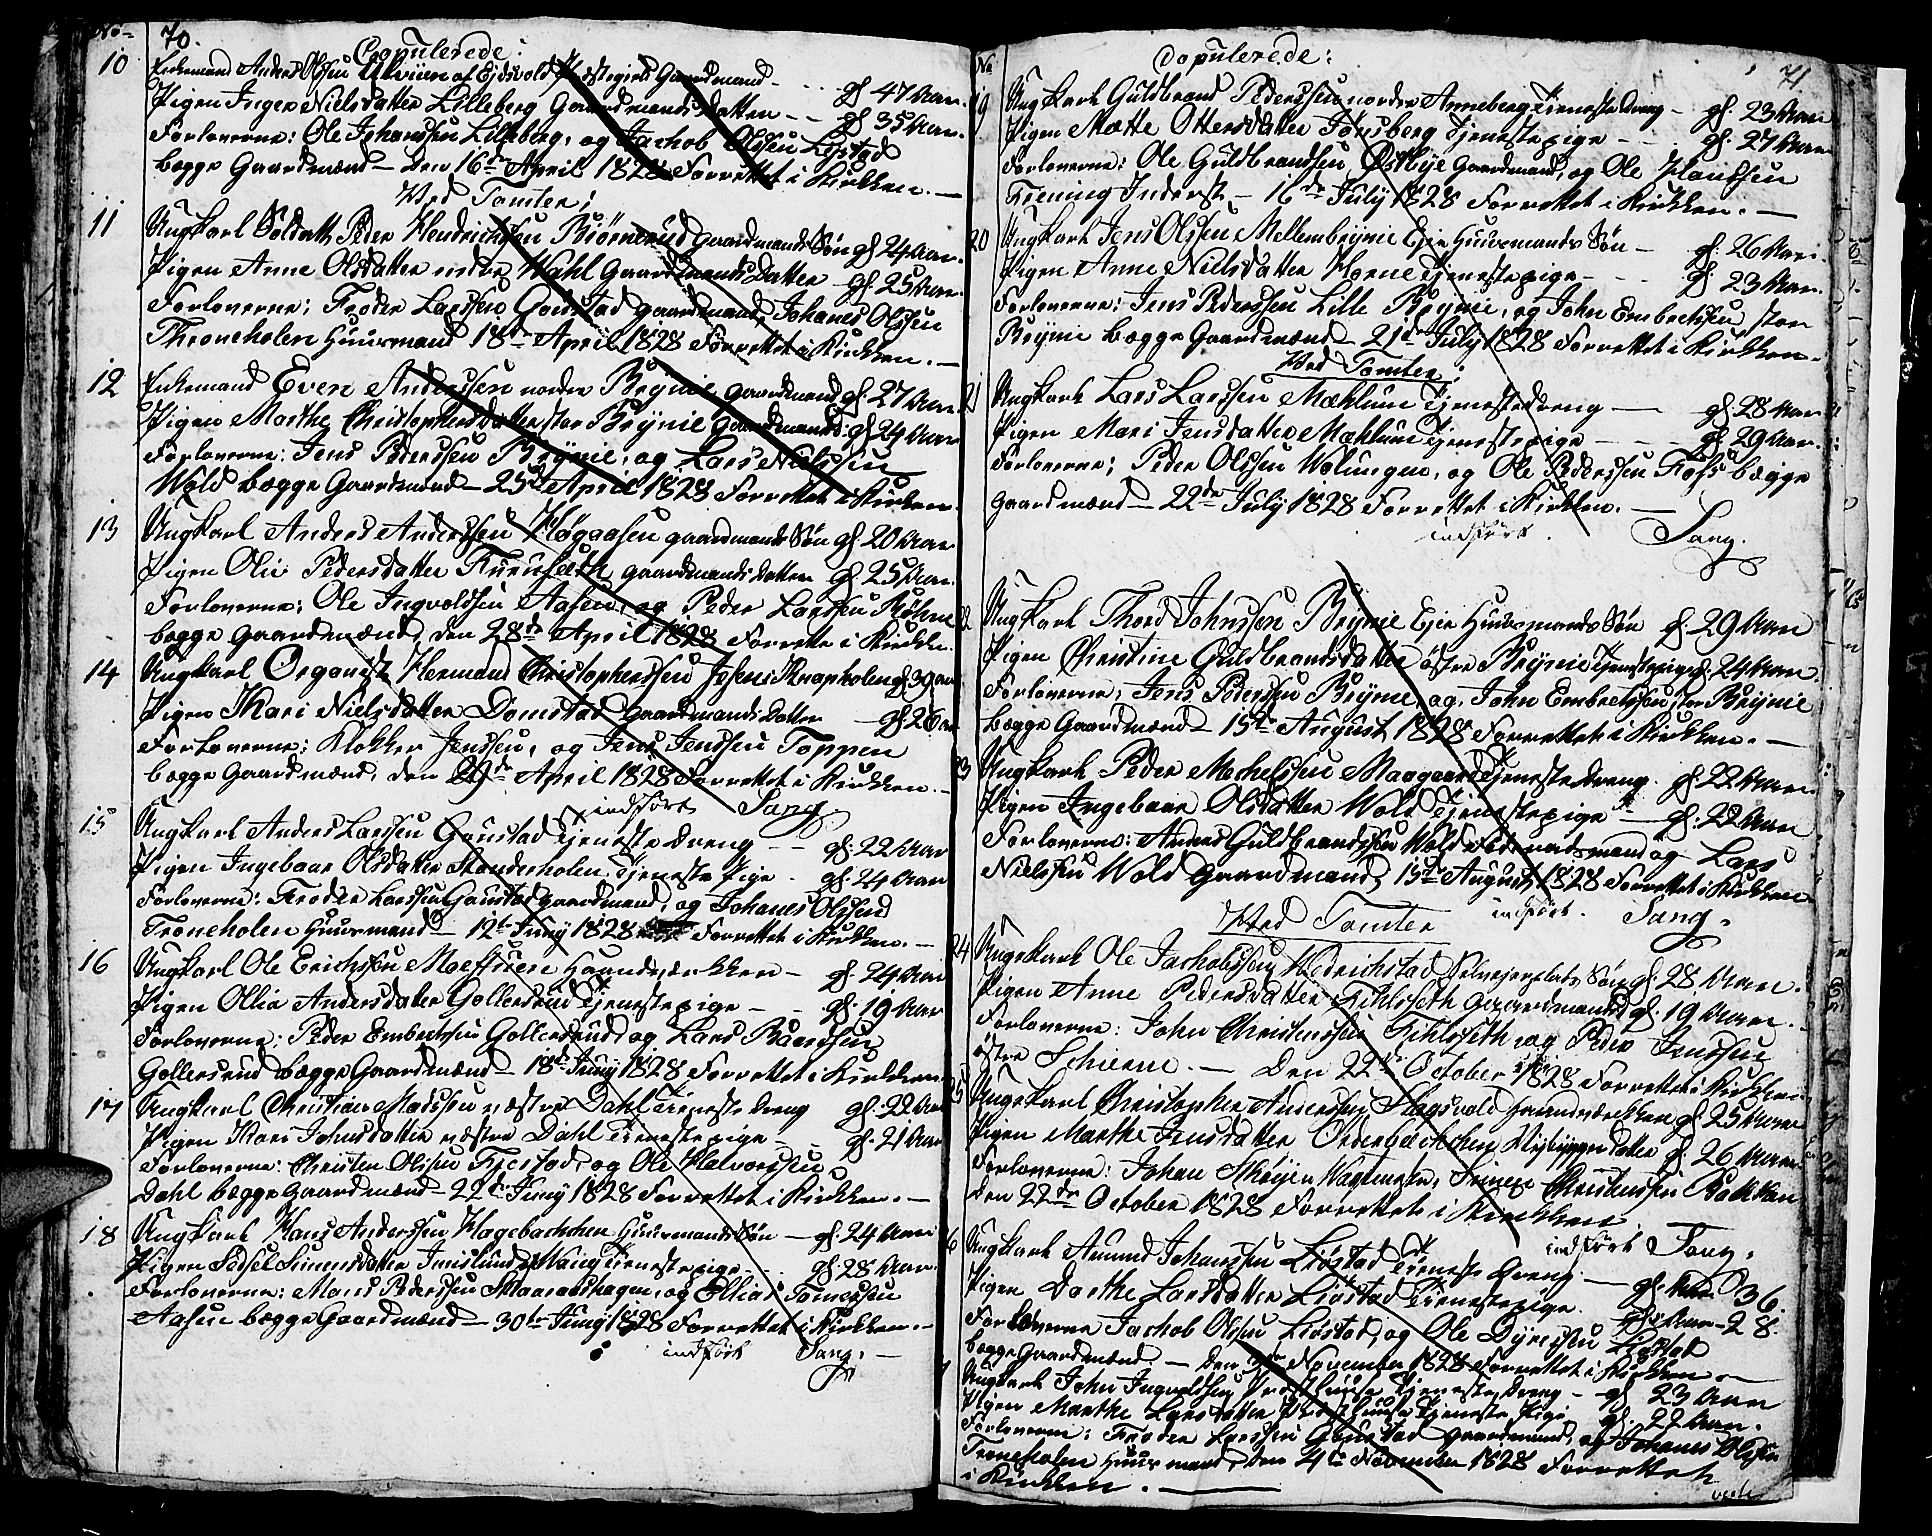 No 70.
Copulerede:
10 Enkemand Anders Olssen Ulviien af Ejdsvold Præstegield Gaardmand - gl. 47 Aar.
Pigen Inger Nielsdatter Lilleberg Gaardmands Datter - - gl. 35 Aar.
Forloverne: Ole Johanssen Lilleberg, og Jachob Olssen Liøstad
begge Gaardmænd - Den 16de April 1828 Forrettet i Kirken. -
Ved Tomter;
11 Ungkarl Soldatt Peder Hendrichssen Biørnerud gaardmands Søn gl. 24 Aar.
Pigen Anne Olsdatter nedre Wahl Gaardmands Datter - gl. 25 Aar.
Forloverne; Frøder Larssen Goustad gaardmand, Johanes Olssen
Throneholen Huusmand 18de April 1828 Forrettet i Kirkken. -
12 Enkemand Even Anderssen nordre Brynie gaardmand gl. 27 Aar.
Pigen Marthe Christophersdatter stor Brynie Gaardmands: gl. 24 Aar
Forloverne: Jens Pederssen Brynie, og Lars Nielssen
Wold begge Gaardmænd - 25de April 1828 Forrettet i Kirken.
13 Ungkarl Anders Anderssen Høgaasen gaardmands Søn gl. 20 Aar
Pigen Olie Pedersdatter Furuseth gaardmands Datter gl. 25 Aar.
Forloverne; Ole Ingvoldsen Aasen, og Peder Larssen Bøhne
begge Gaardmænd, den 28de April 1828 Forrette i Kirkken.
14 Ungkarl Organist Hermand Christopherssen Knapholen gl. 30 Aar
Pigen Kari Nielsdatter Domstad gaardmands Datter - gl. 26 Aar
Forloverne; Klokker Jenssen, og Jens Jenssen Toppen
begge Gaardmænd, den 29de April 1828 Forrettet i Kirkken. -
indført Sang.
15 Ungkarl Anders Larssen Goustad Tjenestedreng - - gl. 22 Aar
Pigen Ingebaar Olsdatter Stenderholen Tjeneste Pige - gl. 24 Aar
Forloverne: Frøder Larssen Goustad gaardmand, og Johanes Olssen
Troneholen Huusmand - 12te Juny 1828 Forrettet i Kirkken. -
16 Ungkarl Ole Erichssen Haandværkker - gl. 24 Aar
Pigen Ollia Andersdatter Gollersrud Tjenestepige - - gl. 19 Aar
Forloverne: Peder Embretssen Gollersrud, og Lars Baardssen
Gollersrud begge Gaardmænd - 18de Juny 1828 Forrettet i Kirkken.
17 Ungkarl Christian Madssen næstre Dahl Tienestedreng gl. 22 Aar
Pigen Kari Johnsdatter næstre Dahl Tienestepige - - gl. 21 Aar
Forloverne: Christen Olssen Fjestad, og Ole Halvorssen
Dahl begge Gaardmænd - 22de Juny 1828 Forrettet i Kirkken. -
18 Ungkarl Hans Anderssen Hagebachchen Huusmands Søn - gl. 24 Aar
Pigen Sidsel Simensdatter Waug Tienestepige - gl. 28 Aar.
Forloverne: Mons Pederssen og Ellias
Aasen begge Gaardmænd - 30te Juny 1828 Forrettet i Kirkken. -
indført Sang. -
No 71
Copulerede:
19 Ungkarl Guldbrand Pederssen nordre Anneberg Tjenestedreng - gl. 23 Aar
Pigen Mætte Ottersdatter Tønsberg Tjenestepige - - gl. 27 Aar
Forloverne: Ole Guldbrandssen Østbye Gaardmand, og Ole Hanssen
Inderst - 16de July 1828 Forrettet i Kirkken. -
20 Ungkarl Jens Olssen Mellembrynie Eje Huusmands Søn - gl. 26 Aar.
Pigen Anne Nielsdatter Horne Tjenestepige - - gl. 23 Aar.
Forloverne: Jens Pederssen Lille Brynie, og John Embretssen stor
Brynie begge Gaardmænd - 21de July 1828 Forrettet i Kirkken.
Ved Tomter;
21 Ungkarl Lars Larssen Mæhlum Tjenestedreng - gl. 28 Aar
Pigen Mari Jensdatter Mæhlum Tjenestepige - - - gl. 29 Aar.
Forloverne; Peder Olssen Wolungen, og Ole Pederssen Foss begge
gaardmænd - 22de July 1828 Forrettet i Kirkken. -
indført. Sang.
22 Ungkarl Thord Johnssen Brynie Eje Huusmands Søn gl. 29 Aar
Pigen Christine Guldbrandsdatter østre Brynie Tjenstepige gl. 24 Aar.
Forloverne; Jens Pederssen Brynie, og, John Embretssen stor Brynie
begge Gaardmænd - 15de August 1828 Forrettet i Kirkken. -
23 Ungkarl Peder Mechelssen Maagaard Tjenestedreng. gl. 22 Aar.
Pigen Ingebaar Olsdatter Wold Tjenestepige - gl. 22 Aar
Forloverne: Anders Guldbrandssen Wold Føderaadsmand og Lars
Nielssen Wold gaardmand, 15de August 1828 Forrettet i Kirkken
indført. Sang.
Ved Tomter
24 Ungekarl Ole Jachobssen Hedrichstad Selvejerplads Søn gl. 28 Aar.
Pigen Anne Pedersdatter Fihlseth Gaardmands gl. 19 Aar.
Forloverne: John Christenssen Fihlseth og Peder Jenssen
østre Schierne. - Den 22de October 1828 Forrettet i Kirkken.
25 Ungekarl Christopher Anderssen Slagsvold Haandværkker gl. 25 Aar
Pigen Marthe Jensdatter Datter gl. 26 Aar
Forloverne: Johan Skøyen Wagtmester, Christenssen Bakken
den 22de October 1828 Forrettet i Kirkken
indført Sang.
26 Ungkarl Amund Johanssen Liøstad Tieneste Dreng - gl. 36.
Pigen Dorthe Larsdatter Liøstad Tienestepige. gl. Aar - 28.
Forloverne Jachob Olssen Liøstad, og Ole Dyressen Liøstad
begge Gaardmænd. - Den November 1828 Forrettet i Kirkken -
Ungkarl John Ingvoldssen Tjeneste Dreng - gl 23 Aar
Pigen Marthe Larsdatter Tjeneste Pige gl. 22 Aar.
Forloverne: Frøder Larssen Goustad gaardmand, og Johanes Olssen
Troneholen Huusmand, den 4de November 1828 Forrettet
i Kirkken. -